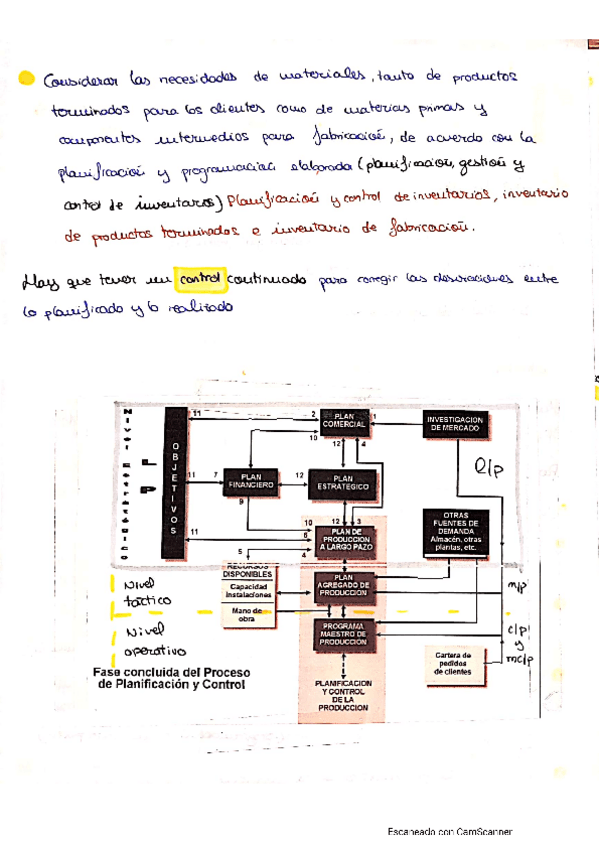 Considerar las necesidades de materiales, tanto de productos
terminados para los clientes como de materias primas y
componentes intermedios para fabricación, de acuerdo con la
planificación y programación elaborada (planificación, gestión y
control de inventarios) Planificación y control de inventarios, inventario
de productos terminados e inventario de fabricación.
Hay que tener un control continuado para corregir las desviaciones entre
lo planificado y lo realizado
Nivel estratégico
LP
OBJETIVOS
11
2
PLAN
COMERCIAL
1
INVESTIGACION
DE MERCADO
10
12
4
L/p
11
7
PLAN
FINANCIERO
12
PLAN
ESTRATEGICO
9
OTRAS
FUENTES DE
DEMANDA
Almacén, otras
plantas, etc.
10
12
3
11
6
PLAN DE
PRODUCCION
A LARGO PAZO
5
4
RECURSOS
DISPONIBLES
Capacidad
Instalaciones
Mano de
obra
PLAN
AGREGADO DE
PRODUCCION
m/p
Nivel
táctico
PROGRAMA
MAESTRO DE
PRODUCCION
c/p
y
mc/p
Nivel
operativo
Cartera de
pedidos
de clientes
Fase concluida del Proceso
de Planificación y Control
PLANIFICACION
Y CONTROL
DE LA
PRODUCCION
Escaneado con CamScanner